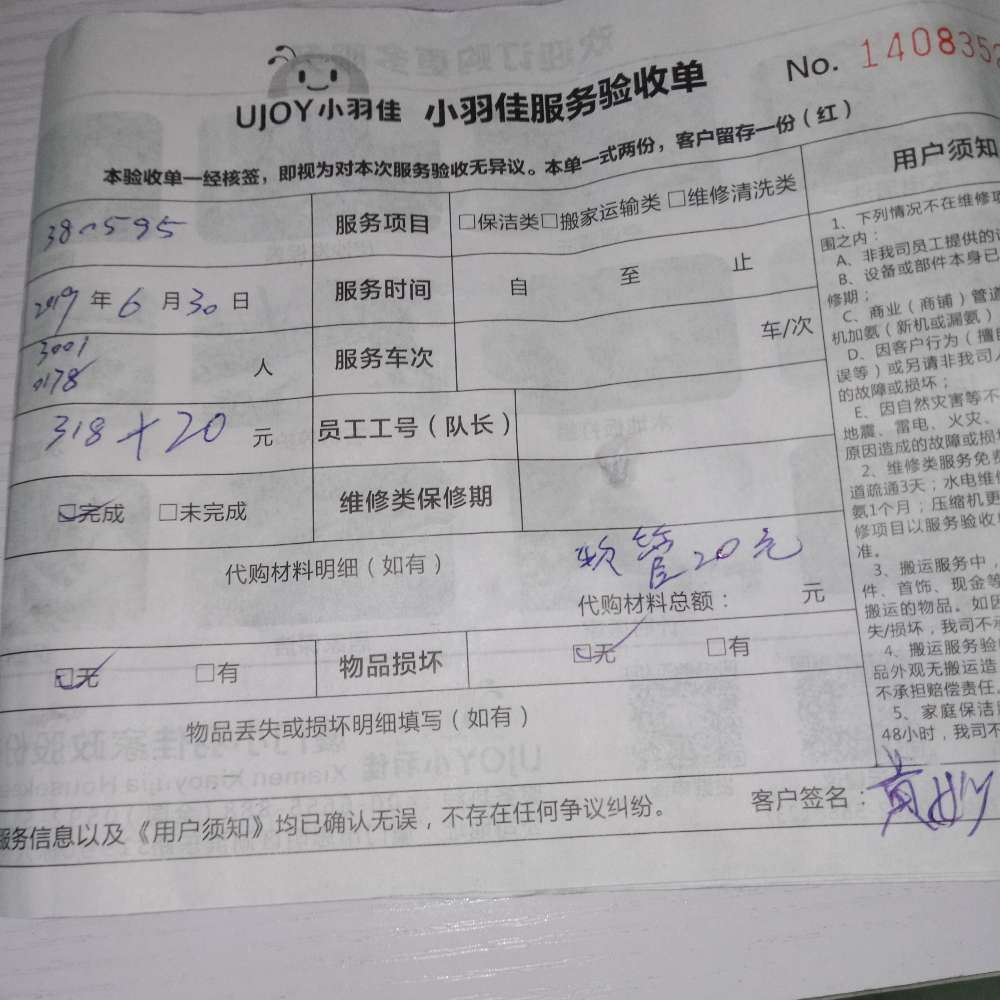 UJOY小羽佳 小羽佳服务验收单 No. 1408352
本验收单一经核签，即视为对本次服务验收无异议。本单一式两份，客户留存一份（红）
服务项目 □保洁类□搬家运输类 □维修清洗类
2019 年 6 月 30 日 服务时间 自 至 止
3001
0178 人 服务车次 车/次
318+20 元 员工工号（队长）
☑完成 □未完成 维修类保修期
代购材料明细（如有） 软管20元
代购材料总额： 元
☑无 □有 物品损坏 ☑无 □有
物品丢失或损坏明细填写（如有）
服务信息以及《用户须知》均已确认无误，不存在任何争议纠纷。 客户签名：
用户须知
1、下列情况不在维修
围之内：
A、非我司员工提供的
B、设备或部件本身已
修期；
C、商业（商铺）管道
机加氨（新机或漏氨）
D、因客户行为（擅自
误等）或另请非我司人
的故障或损坏；
E、因自然灾害等不
地震、雷电、火灾、
原因造成的故障或损坏
2、维修类服务免费
道疏通3天；水电维修
氨1个月；压缩机更
修项目以服务验收单
准。
3、搬运服务中，
件、首饰、现金等
搬运的物品。如因
失/损坏，我司不承
4、搬运服务验收
品外观无搬运造
不承担赔偿责任。
5、家庭保洁
48小时，我司不